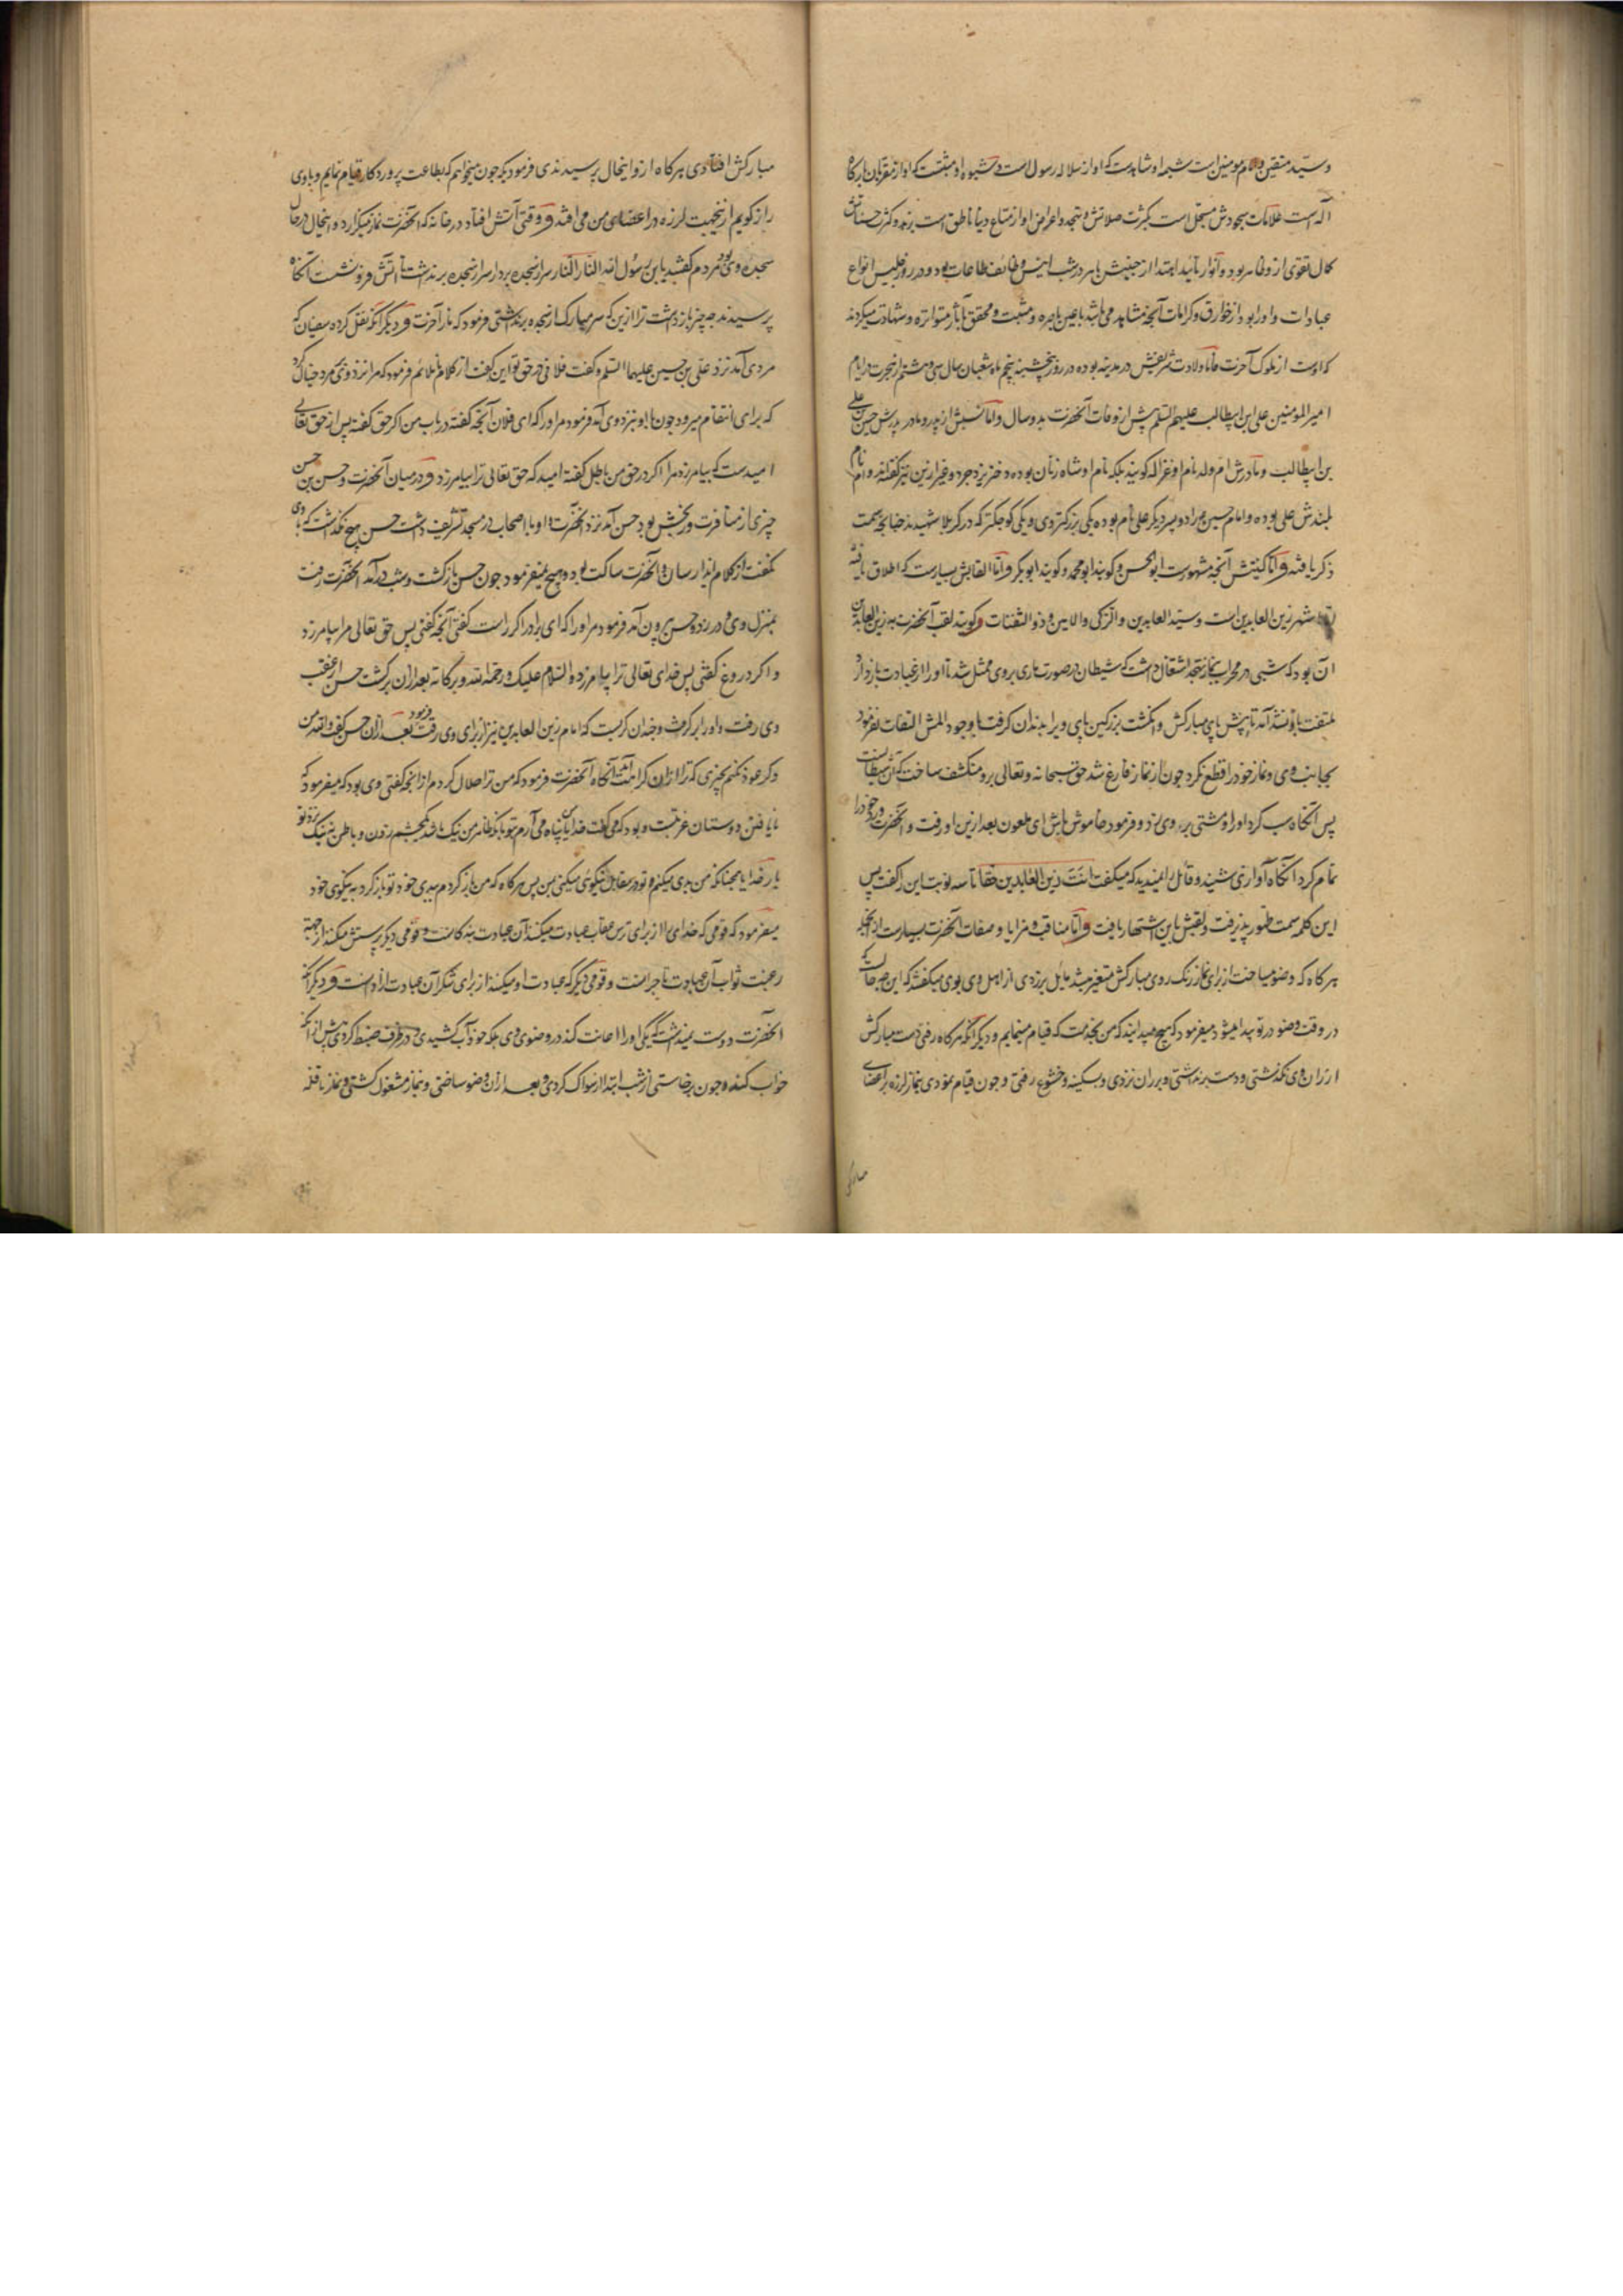 وسید متقین و امام مومنین است شیمه او شاهدست که او از سلاله رسول است و شیوه او مثبتست که او از مقربان بارگاه
اله است علامات سجودش مسجل است بکثرت صلاتش و تهجد و اعراض او از متاع دنیا ناطق است بزهد و کثرت حسناتش
کمال تقوی از وی ظاهر بود و انوار تایید ابتدا از جبینش باهر در شب انیس وظائف طاعات بود و در روز جلیس انواع
عبادات و او را بود از خوارق و کرامات آنچه مشاهد می باشد باعین باصره و مثبت و محقق بآثار متواتره و شهادت میکردند
که اوست از ملوک آخرت فاما ولادت شریفش در مدینه بوده در روز پنجشنبه پنجم ماه شعبان سال سی و هشتم از هجرت در ایام
امیر المؤمنین علی ابن ابیطالب علیهم السلم پیش از وفات آنحضرت بدو سال و اما نسبش از پدر و مادر پدرش حسین علی
بن ابیطالب و مادرش ام ولد نام او غزاله گویند بلکه نام او شاه زنان بوده دختر یزدجرد و غیر ازین نیز گفته‌اند و اما نام
بلندش علی بوده و امام حسین را دو پسر دیگر علی نام بوده یکی بزرگتر وی و یکی کوچکتر که در کربلا شهید شد چنانچه سمت
ذکر یافته و اما کنیتش آنچه مشهورست ابو الحسن و گویند ابو محمد و گویند ابو بکر و اما القابش بسیارست که اطلاق یافته
اشهر زین العابدین است و سید العابدین و الزکی و الامین و ذو الثفنات و گویند لقب آنحضرت به زین العابدین
آن بود که شبی در محراب بنماز تهجد اشتغال داشت که شیطان در صورت ماری بروی ممثل شد تا او را از عبادت باز دارد
ملتفت باو نشد آمد تا پیش پای مبارکش و انگشت بزرگین پای ویرا بدندان گرفت با وجود المش التفات نفرمود
بجانب وی و نماز خود را قطع نکرد چون از نماز فارغ شد حق سبحانه و تعالی برو منکشف ساخت که آن شیطانست
پس آنگاه سب کرد او را و مشتی بر روی زد و فرمود خاموش باش ای ملعون بعد ازین او رفت و آنحضرت ورد خود را
تمام کرد آنگاه آوازی شنید و قائل را نمیدید که میگفت انت زین العابدین حقا تا سه نوبت این را گفت پس
این کلمه سمت ظهور پذیرفت و لقبش باین اشتهار یافت و اما مناقب و مزایا و صفات آنحضرت بسیارست از آنجمله
هرگاه که وضو میساخت از برای نماز رنگ روی مبارکش متغیر میشد مایل بزردی از اهل وی بوی میگفتند که این چه حالست که
در وقت وضو در تو پیدا میشود میفرمود که هیچ میدانید که من بخدمت که قیام مینمایم و دیگر آنکه هرگاه رفتی دست مبارکش
از ران وی نگذشتی و دست برنداشتی و بر ران نزدی و بسکینه و خشوع رفتی و چون قیام نمودی بنماز لرزه بر اعضای
مبارکش افتادی هرگاه از و اینحال پرسیدندی فرمود که چون میخواهم که بطاعت پروردگار قیام نمایم و باوی
راز گویم از ینجهت لرزه در اعضای من می افتد و وقتی آتش افتاد در خانه که آنحضرت نماز میگزارد و اینحال در حال
سجده وی بود مردم گفتند یا بن رسول الله النار النار سر از سجده بردار سر از سجده برنداشت تا آتش فرو نشست آنگاه
پرسیدند چه چیز بازداشت ترا ازین که سر مبارک از سجده برنداشتی فرمود که نار آخرت و دیگر آنکه نقل کرده سفیان که
مردی آمد نزد علی بن حسین علیهما السلم و گفت فلانی در حق تو این گفت از کلام ناملائم فرمود که مرا نزد وی بر مرد خیال کرد
که برای انتقام میرود چون با او نزد وی آمد فرمود مر او را که ای فلان آنچه گفته در باب من اگر حق گفته پس از حق تعالی
امیدست که بیامرزد مرا اگر در حق من باطل گفته امید که حق تعالی ترا بیامرزد و در میان آنحضرت و حسن بن حسن
چیزی از منافرت و رنجش بود حسن آمد نزد آنحضرت و او با اصحاب در مسجد تشریف داشت حسن هیچ نگذاشت که با وی
نگفت از کلام ایذا رسان و آنحضرت ساکت بود و هیچ نمیفرمود چون حسن بازگشت و شب درآمد آنحضرت رفت
بمنزل وی و در زد و حسن بیرون آمد فرمود مر او را که ای برادر اگر راست گفتی آنچه گفتی پس حق تعالی مرا بیامرزد
و اگر دروغ گفتی پس خدای تعالی ترا بیامرزد السلام علیک و رحمة الله و برکاته بعد ازان برگشت حسن از عقب
وی رفت و او را بر گرفت و چندان گریست که امام زین العابدین نیز از برای وی رقت فرمود بعد ازان حسن گفت والله من
دگر عود نکنم بچیزی که ترا ازان کراهت آید آنگاه آنحضرت فرمود که من ترا حلال کردم از آنچه گفتی وی بود که میفرمود که
نایافتن دوستان غربتست و بود که می گفت خدایا پناه می آرم بتو بآنکه ظاهر من نیک باشد بچشم مردم و باطن نه نیک نزد تو
بار خدایا همچنانکه من بدی میکنم و تو در مقابل نیکوی میکنی بمن پس هرگاه که من بازگردم ببدی خود تو بازگرد به نیکوی خود
میفرمود که قومی که خدای را از برای ترس عقاب عبادت میکنند آن عبادت بندگانست و قومی دیگر پرستش میکنند از جهة
رغبت ثواب آن عبادت تاجرانست و قومی دیگر که عبادت او میکنند از برای شکر آن عبادت آزادانست و دیگر آنکه
آنحضرت دوست نمیداشت که یکی او را اعانت کند در وضوی وی بلکه خود آب کشیدی و در ظرف ضبط کردی پیش از آنکه
خواب کند و چون برخاستی از شب ابتدا از مسواک کردی و بعد ازان وضو ساختی و بنماز مشغول گشتی و نماز نافله